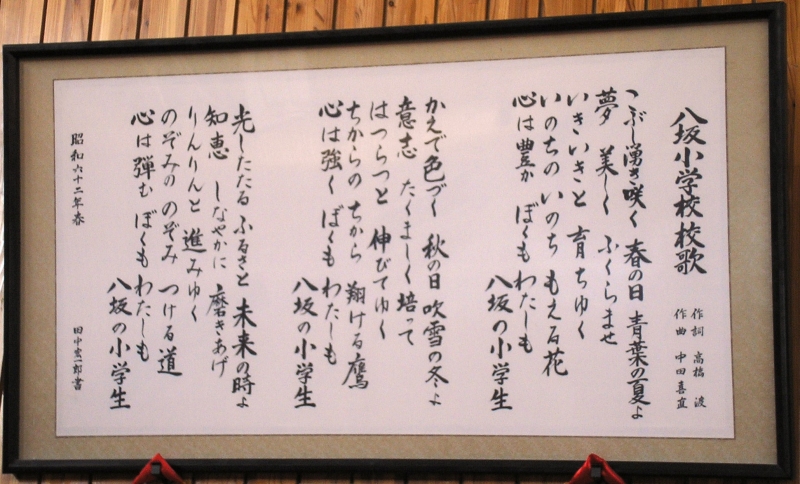 八坂小学校校歌
作詞 高橋 波
作曲 中田喜直
こぶし湧き咲く 春の日 青葉の夏よ
夢 美しく ふくらませ
いきいきと 育ちゆく
いのちの いのち もえる花
心は豊か ぼくも わたしも
八坂の小学生
かえで色づく 秋の日 吹雪の冬よ
意志 たくましく培って
はつらつと 伸びてゆく
ちからの ちから 翔ける鷹
心は強く ぼくも わたしも
八坂の小学生
光したたる ふるさと 未来の時よ
知恵 しなやかに 磨きあげ
りんりんと 進みゆく
のぞみの のぞみ つける道
心は弾む ぼくも わたしも
八坂の小学生
昭和六十二年春
田中宏一郎書